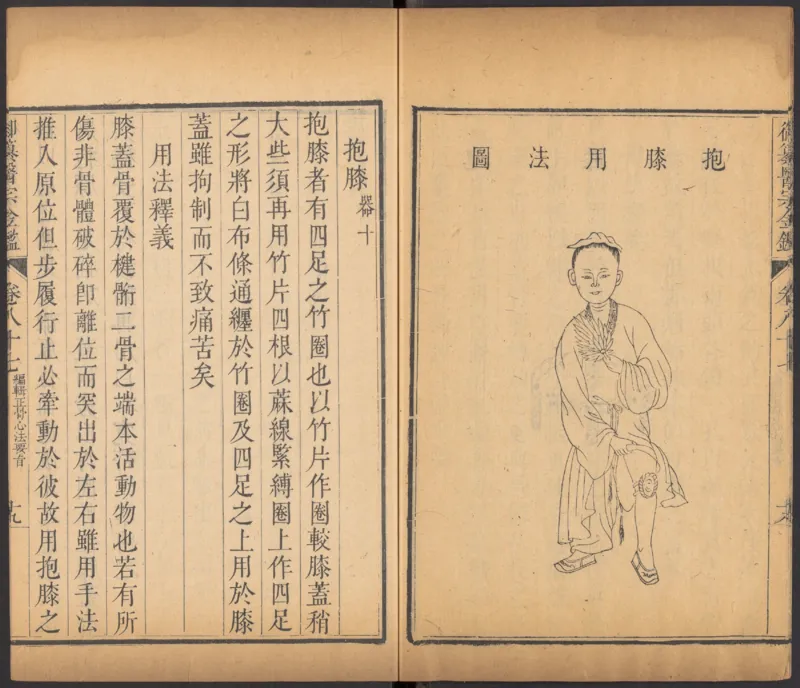 抱膝用法圖
抱膝器十
抱膝者有四足之竹圈也以竹片作圈較膝蓋稍
大些須再用竹片四根以蔴線緊縛圈上作四足
之形將白布條通纏於竹圈及四足之上用於膝
蓋雖拘制而不致痛苦矣
用法釋義
膝蓋骨覆於楗䯒二骨之端本活動物也若有所
傷非骨體破碎卽離位而突出於左右雖用手法
推入原位但步履行止必牽動於彼故用抱膝之
御纂醫宗金鑑
卷八十七
編輯正骨心法要旨
十九